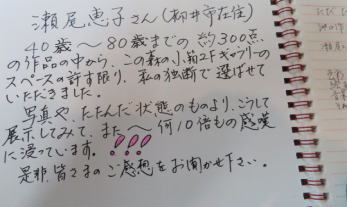 瀬尾恵子さん(柳井市在住)
40歳～80歳までの約300点
の作品の中から、この森の小箱2Fギャラリーの
スペースの許す限り、私の独断で選ばせて
いただきました。
写真や、たたんだ状態のものより、こうして
展示してみて、また～何10倍もの感嘆
に浸っています。!!!
是非、皆さまのご感想をお聞かせ下さい。